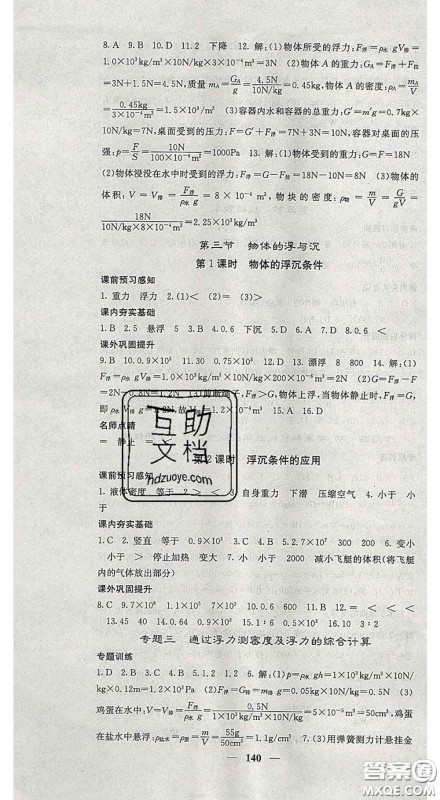 8.A　9.B　10.D　11.2　下降　12.解:(1)物体所受的浮力:F浮=ρ水 gV排=
1.0×10³kg/m³×10N/kg×3×10⁻⁴m³=3N (2)物体 A 的重力:G_A=F浮+F拉
=3N+1.5N=4.5N,质量 m_A=G_A/g=4.5N/10N/kg=0.45kg,物体 A 的密度:ρ_A=m_A/V
=0.45kg/3×10⁻⁴m³=1.5×10³/m³ (3)容器内水和容器的总重力:G′=m′g=0.7kg×
10N/kg=7N,桌面受到的压力:F=G′+F浮=7N+3N=10N,容器对桌面的压
强:p=F/S=10N/100×10⁻⁴m²=1000Pa　13.解:(1)物体受到的重力:G=F=18N
(2)物体浸没在水中时受到的浮力:F浮=G-F拉=18N-10N=8N (3)物体的
体积:V=V排=F浮/ρ水g=8×10⁻⁴m³,物块的密度:ρ物=m/V=G/gV=
18N/10N/kg×8×10⁻⁴m³=2.25×10³kg/m³
第三节　物体的浮与沉
第1课时　物体的浮沉条件
课前预习感知
1.重力　浮力　2.(1)<　(2)=　(3)>
课内夯实基础
1.B　2.5　悬浮　3.B　4.0.6　下沉　5.A　6.D　7.D　8.0.6　<
课外巩固提升
9.B　10.0.9×10³　11.30　0.75×10³　12.D　13.漂浮　8　800　14.解:(1)
F浮=ρ水gV排=1.0×10³kg/m³×10N/kg×200×10⁻⁶m³=2N (2)G=F浮-F拉
=2N-0.8N=1.2N (3)剪断绳子,F浮>G,物体上浮,当物体静止时,F浮=G,
即 ρ水gV排 0N　15.A　16.D
名师点睛
=　静止　=
第2课时　浮沉条件的应用
课前预习感知
1.液体密度　等于　2.>　<　3.自身重力　下潜　压缩空气　4.小于　小
于
课内夯实基础
1.C　2.竖直　等于　0.9×10³　3.B　4.B　5.2.7　2.7×10³　300　6.变小
小于　小于　>　停止加热　变大　7.小于　小于　2000　减小飞艇的体积(将飞艇
内的气体放出部分)
课外巩固提升
8.C　9.7×10⁸　1.1×10⁵　7×10³　10.600　600　11.D　12.=　<　<　<
13.45　40　14.0.64　0.15　0.5×10³　15.<　=　>
专题三　通过浮力测密度及浮力的综合计算
专题训练
1.D　2.B　3.B　4.D　5.1.2　1.2　6.解:(1)p=ρ水gh=1×10³kg/m³×10N/
kg×0.12m=1.2×10³Pa (2)F浮=G排=m排g=0.05kg×10N/kg=0.5N (3)
鸡蛋在水中:V=V排=F浮/ρ水g=0.5N/1×10³kg/m³×10N/kg=5×10⁻⁵m³,鸡蛋
在盐水中悬浮:ρ盐水=ρ蛋=m/V=55g/50cm³=1.1g/cm³　7.(3)用弹簧测力计悬挂金
140
互助
文档
hdzuoye.com
答案圈
MXQE.COM